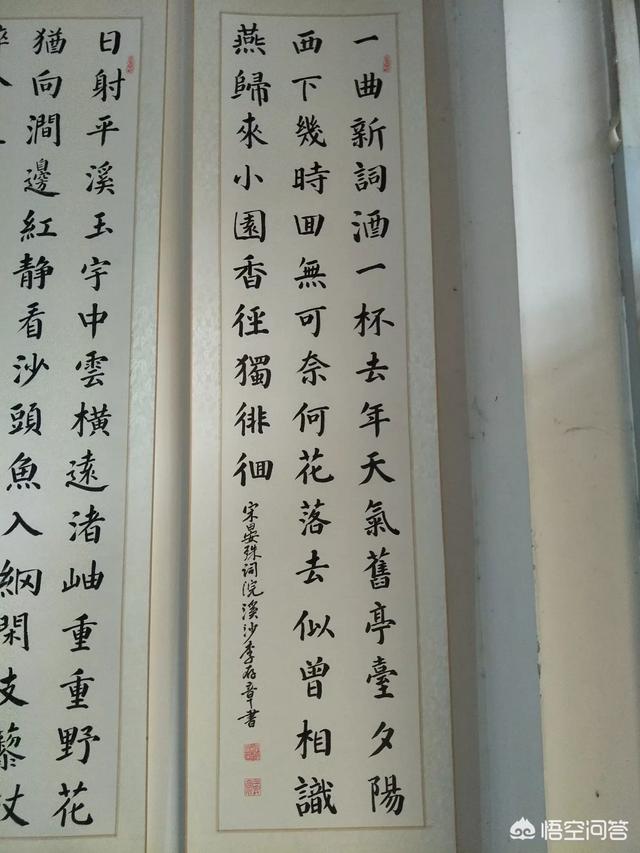 一曲新詞酒一杯去年天氣舊亭臺夕陽
西下幾時囬無可奈何花落去似曾相識
燕歸來小園香徑獨徘徊
宋晏殊词浣溪沙李存章書
日射平溪玉宇中雲橫遠渚岫重重野花
猶向澗邊紅静看沙頭魚入網閑支藜杖
悟空问答